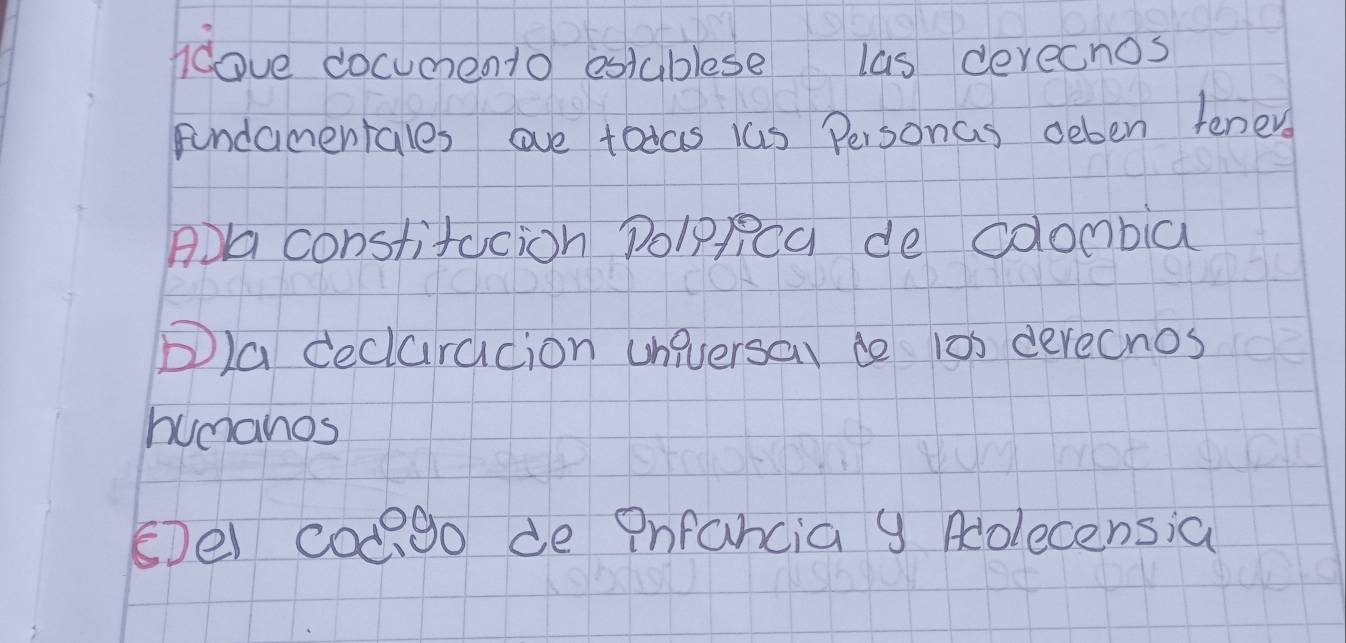 1¿Que documento establese las derechos
Fundamentales que todas las Personas deben tener.
A)la constitucion Politica de colombia
B)la declaracion universal de los derechos
humanos
C)el codigo de infancia y Adolecensia